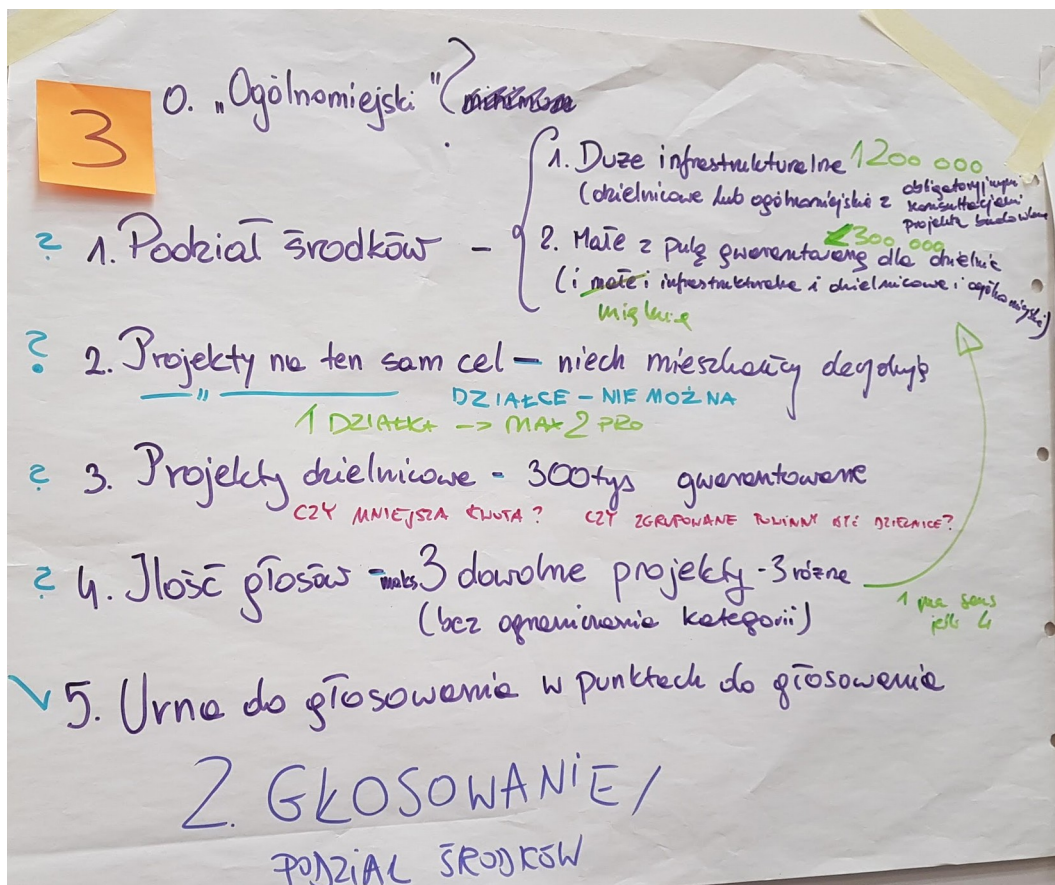 3
0. „Ogólnomiejski"?
1. Duże infrastrukturalne 1200 000
(dzielnicowe lub ogólnomiejskie z obligatoryjnymi
konsultacjami
projektu budowlan
? 1. Podział środków –
<300 000
2. Małe z pulą gwarantowaną dla dzielnic
(i małe i infrastrukturalne i dzielnicowe i ogólnomiejskie)
miękkie
? 2. Projekty na ten sam cel – niech mieszkańcy decydują
— " — DZIAŁCE – NIE MOŻNA
1 DZIAŁKA -> MAX 2 PRO
? 3. Projekty dzielnicowe - 300tys gwarantowane
CZY MNIEJSZA KWOTA? CZY ZGRUPOWANE POWINNY BYĆ DZIELNICE?
? 4. Ilość głosów - maks 3 dowolne projekty - 3 różne
(bez ograniczenia kategorii)
1 ma sens
jeśli 4
5. Urna do głosowania w punktach do głosowania
2. GŁOSOWANIE/
PODZIAŁ ŚRODKÓW